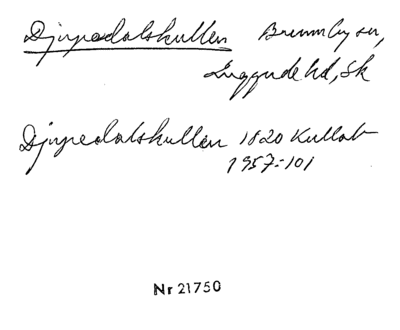 Djupedalskullen Brunnby sn,
Luggude hd, Sk
Djupedalskullen 1820 Kullab
1957:101
Nr 21750